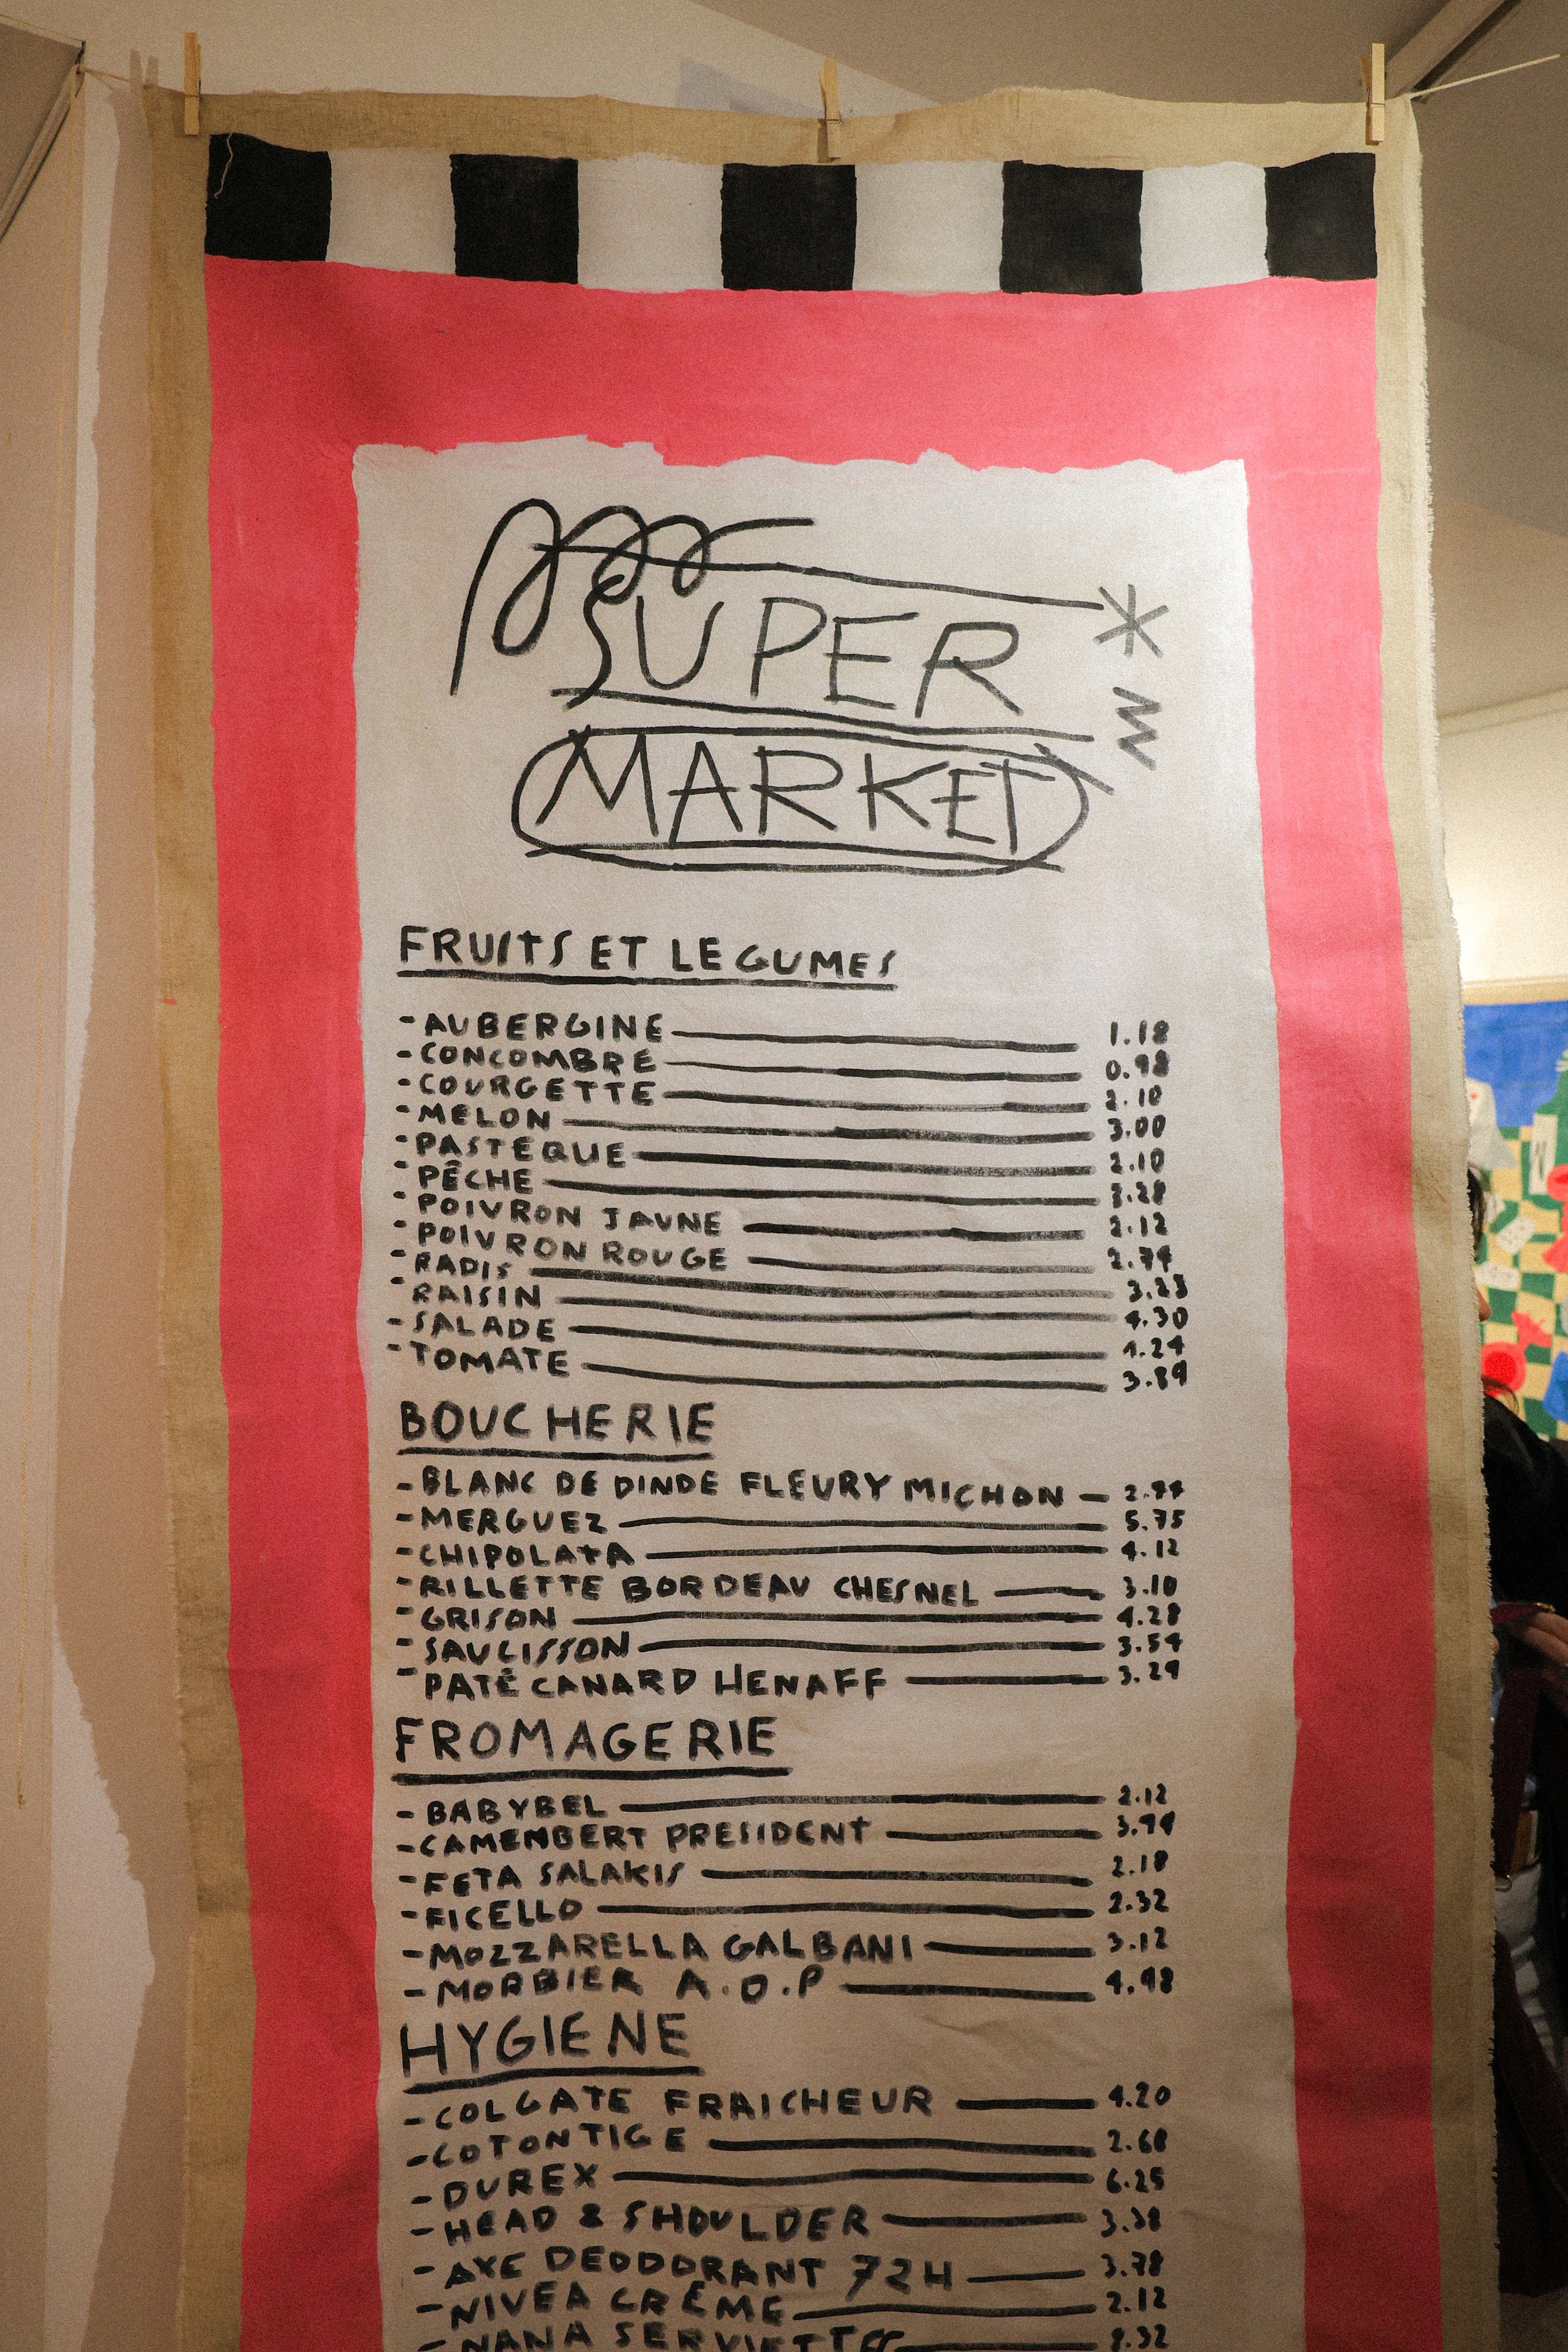 SUPER
MARKET
FRUITS ET LEGUMES
- AUBERGINE 1.18
- CONCOMBRE 0.98
- COURGETTE 2.10
- MELON 3.00
- PASTEQUE 2.10
- PÊCHE
- POIVRON JAUNE 2.12
- POIVRON ROUGE 2.74
- RADIS 3.23
- RAISIN 4.30
- SALADE 1.24
- TOMATE 3.89
BOUCHERIE
- BLANC DE DINDE FLEURY MICHON
- MERGUEZ 5.75
- CHIPOLATA 4.12
- RILLETTE BORDEAU CHESNEL 3.10
- GRISON 4.28
- SAUCISSON 3.54
- PATÉ CANARD HENAFF 3.29
FROMAGERIE
- BABYBEL 2.12
- CAMEMBERT PRESIDENT
- FETA SALAKIS 2.18
- FICELLO 2.32
- MOZZARELLA GALBANI 3.12
- MORBIER A.O.P 4.98
HYGIENE
- COLGATE FRAICHEUR 4.20
- COTONTIGE 2.68
- DUREX 6.25
- HEAD & SHOULDER 3.38
- AXE DEODORANT 72H 3.78
- NIVEA CRÈME 2.12
- NANA SERVIETTE